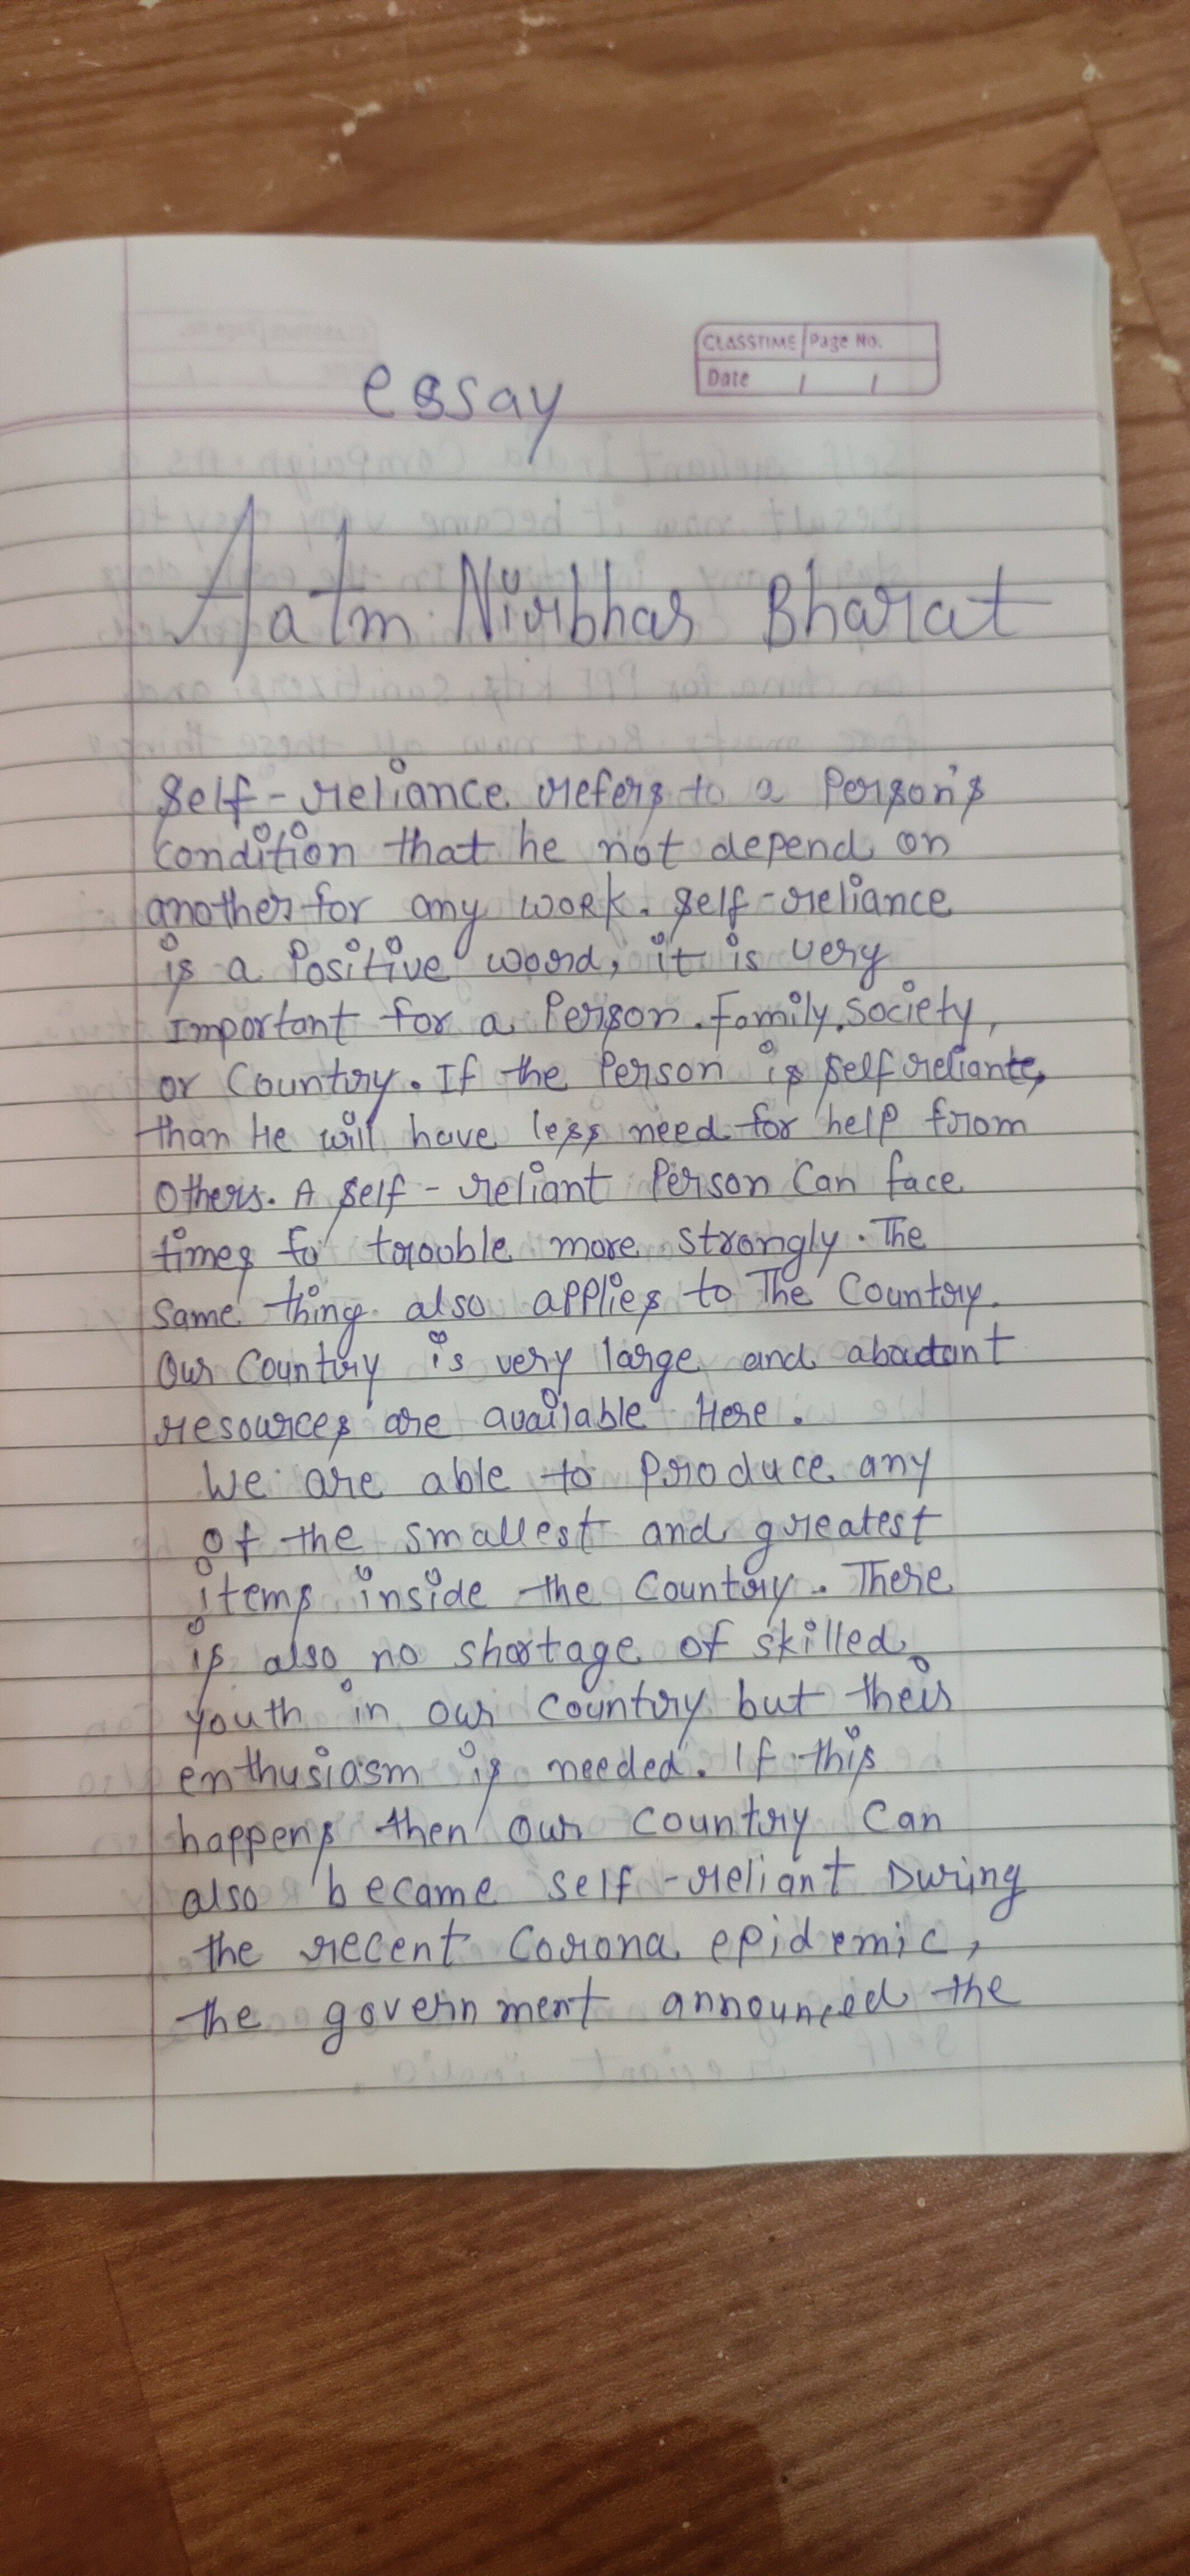 CLASSTIME Page No.
Date / /
essay
Aatm Nirbhar Bharat
Self-reliance refers to a Person's
condition that he not depend on
another for any work. Self-reliance
is a Positive word, it is very
Important for a Person. Family, Society,
or Country. If the Person is self reliante,
than He will have less need for help from
others. A self-reliant Person Can face
times fo trooble more strongly. The
same thing also applies to The Country.
Our Country is very large and abadant
resources are available Here.
We are able to Produce any
of the smallest and greatest
items inside the Country. There
is also no shortage of skilled
youth in our Country but their
enthusiasm is needed. If this
happens then our country Can
also became self-reliant During
the recent Corona epidemic,
the government announced the